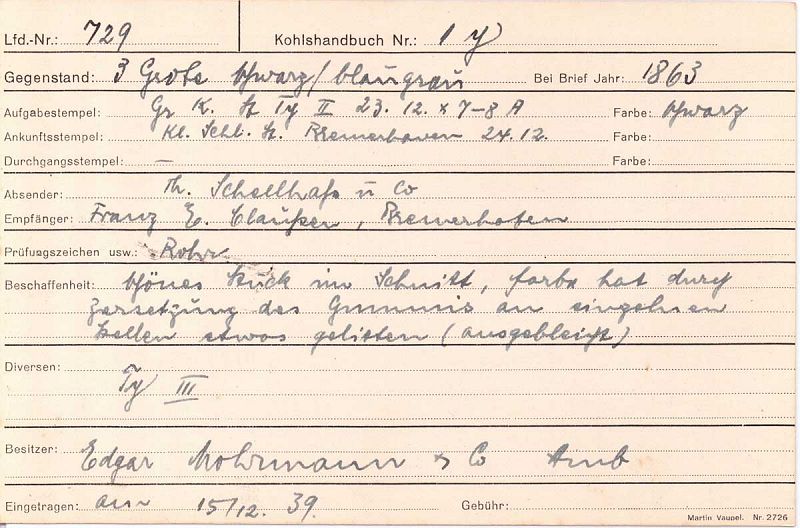 Lfd.-Nr.: 729 Kohlshandbuch Nr.: 1 y
Gegenstand: 3 Grote schwarz/blaugrau Bei Brief Jahr: 1863
Aufgabestempel: Gr K. St Ty II 23. 12. x 7-8 A Farbe: schwarz
Ankunftsstempel: Kl. Schl. St. Bremerhaven 24.12. Farbe:
Durchgangsstempel: — Farbe:
Absender: Th. Schellhass u Co
Empfänger: Franz E. Claußen, Bremerhafen
Prüfungszeichen usw.: Rohr
Beschaffenheit: schönes Stück im Schnitt, farbe hat durch
Zersetzung des Gummis an einzelnen
stellen etwas gelitten (ausgebleicht)
Diversen: Ty III
Besitzer: Edgar Mohrmann & Co Hmb
Eingetragen: am 15/12. 39. Gebühr:
Martin Vaupel. Nr. 2726